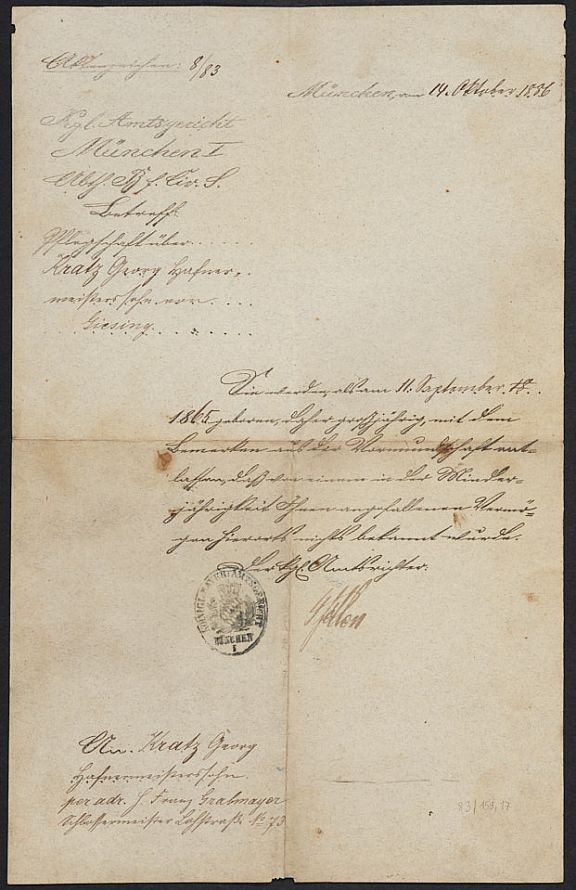 Aktenzeichen: 8/83
München, am 14. Oktober 1886
Kgl. Amtsgericht
München I
Abth. B f. Civ. S.
Betreff:
Pflegschaft über . . . . .
Kratz Georg Hafner- . .
meisterssohn von . . . .
. . Giesing . . . . . . .
Sie werden, als am 11. September 18 . .
1865 geboren, daher großjährig, mit dem
Bemerken aus der Vormundschaft ent-
lassen, daß von einem in der Minder-
jährigkeit Ihnen angefallenen Vermö-
gen hierorts nichts bekannt wurde.
Der kgl. Amtsrichter.
KÖNIGL. BAYER. AMTSGERICHT
MÜNCHEN
I
An Kratz Georg
Hafnermeisterssohn
per adr. H. Franz Gralmayer
Schlossermeister Lohstraße No 73
83/159,17